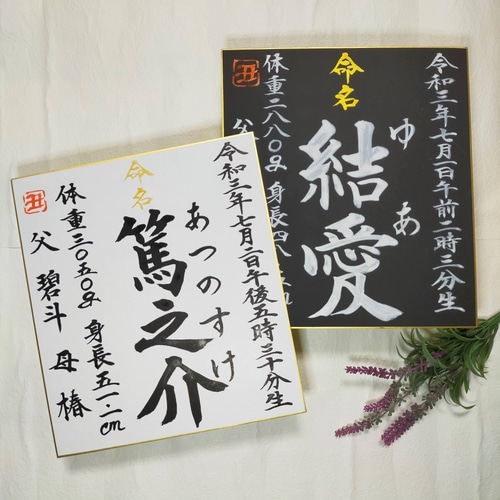 令和三年七月一日午前二時三分生
命名
ゆあ
結愛
体重二八八〇g 身長四八
丑
父
令和三年七月二日午後五時三十分生
命名
あつのすけ
篤之介
体重三〇五〇g 身長五一.一cm
丑
父 碧斗 母 椿